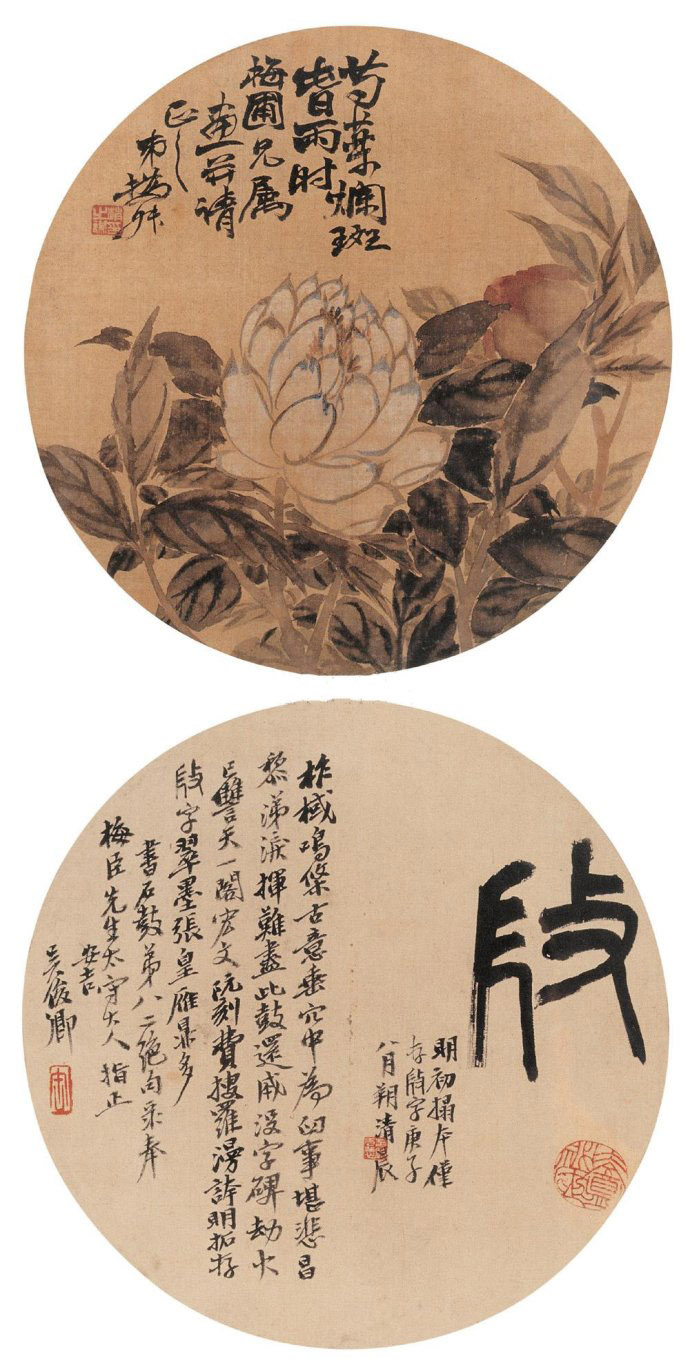 芍藥爛斑
雨时
梅圃兄属
畫并請
正之
弟撝叔
明初搨本僅
存字庚子
八月朔清晨
柞棫鳴條古意垂穴中為臼事堪悲昌
黎涕淚揮難盡此鼓還成沒字碑劫火
已讐天一閣宏文阮刻費搜羅漫誇明拓存
字翠墨張皇雁鼎多
書石鼓第八二絕句录奉
梅臣先生太守大人 指正
安吉
吳俊卿